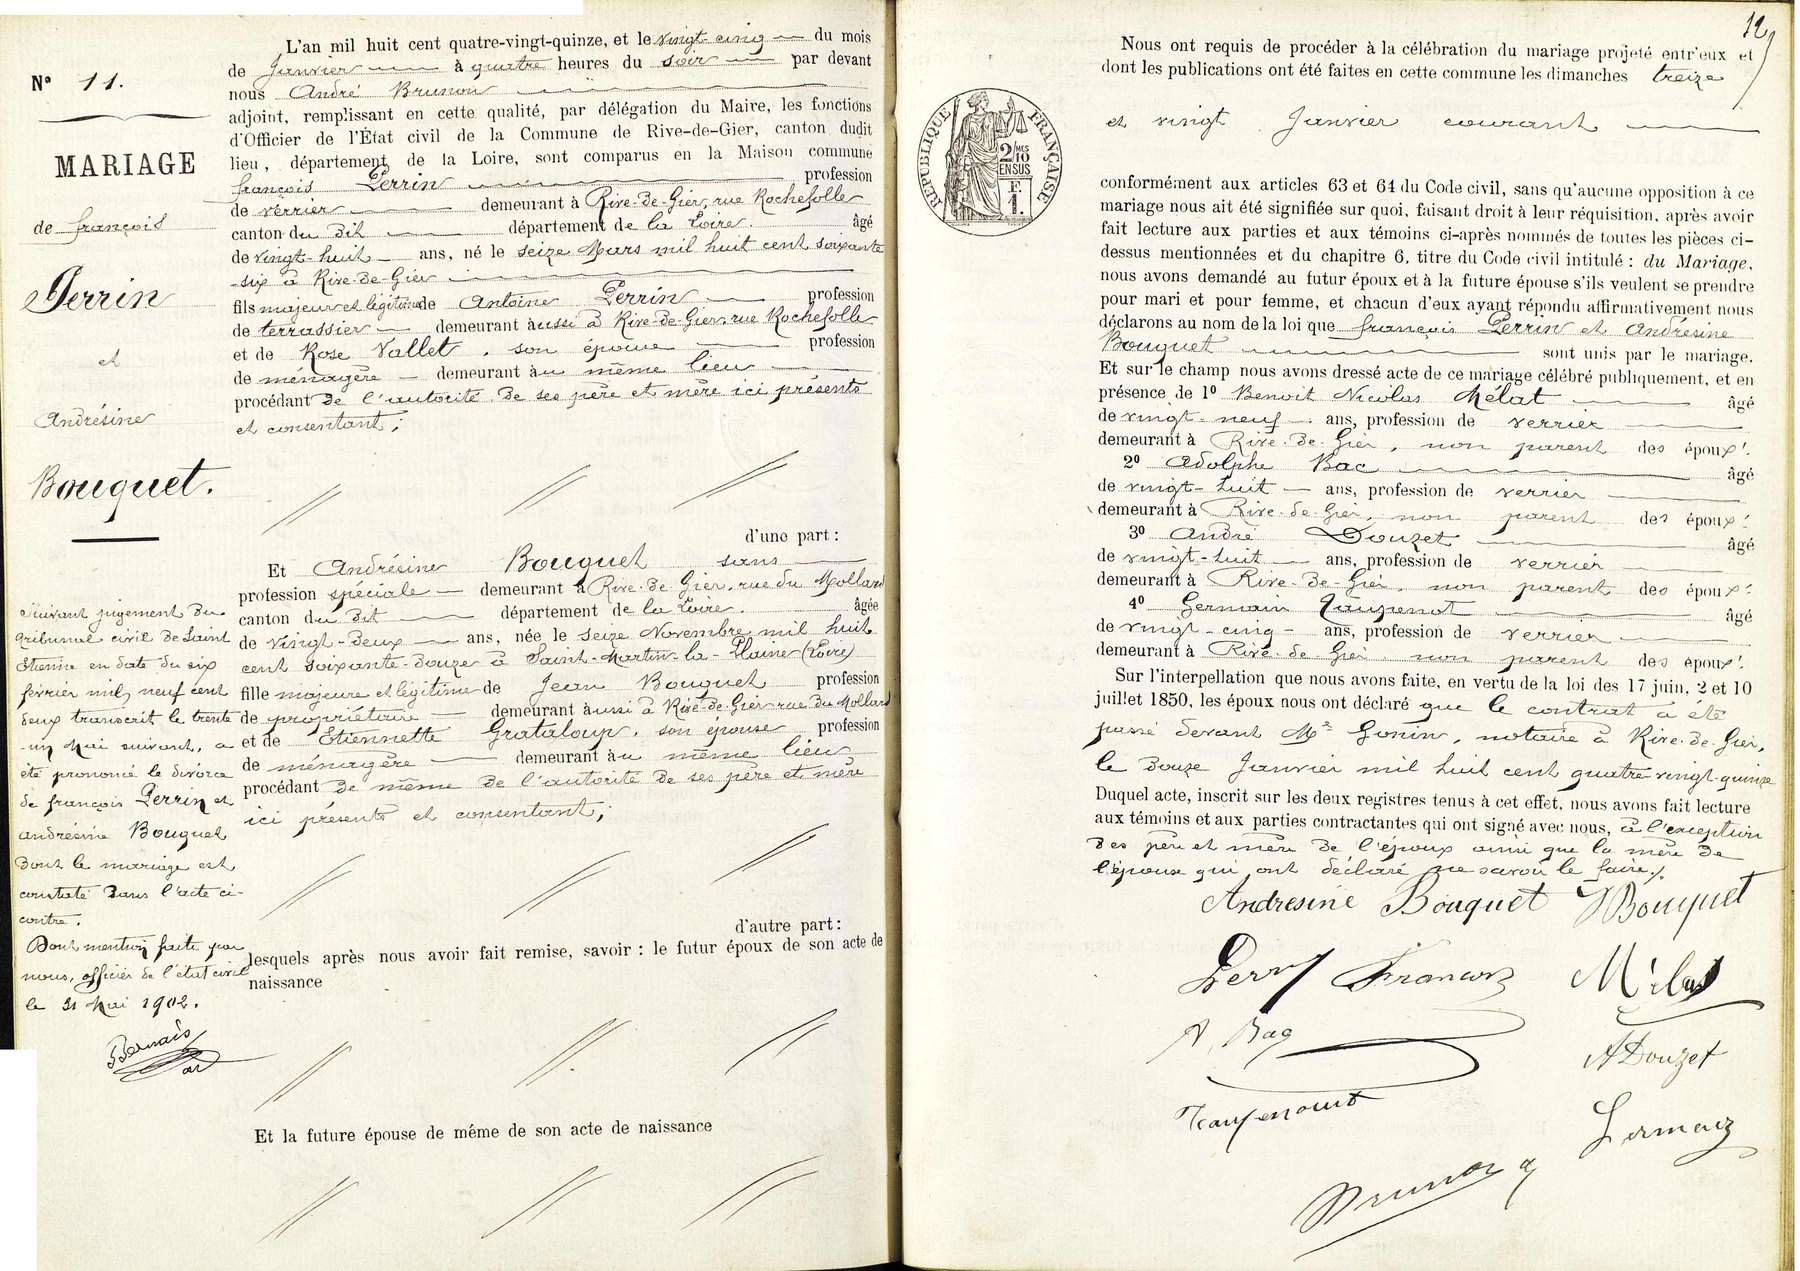 L'an mil huit cent quatre-vingt-quinze, et le vingt-cinq du mois
de Janvier à quatre heures du soir par devant
nous André Brunon
adjoint, remplissant en cette qualité, par délégation du Maire, les fonctions
d'Officier de l'État civil de la Commune de Rive-de-Gier, canton dudit
lieu, département de la Loire, sont comparus en la Maison commune
françois Perrin profession
de verrier demeurant à Rive-de-Gier, rue Rochefolle
canton du dit département de la Loire. âgé
de vingt-huit ans, né le seize Mars mil huit cent soixante
-six à Rive-de-Gier
fils majeur et légitime de Antoine Perrin profession
de terrassier demeurant aussi à Rive-de-Gier, rue Rochefolle
et de Rose Vallet, son épouse profession
de ménagère demeurant au même lieu
procédant de l'autorité de ses père et mère ici présents
et consentant;
d'une part :
Et Andrésine Bouquet sans
profession spéciale demeurant à Rive-de-Gier, rue du Mollard
canton du dit département de la Loire. âgée
de vingt-deux ans, née le seize Novembre mil huit
cent soixante-douze à Saint-Martin-la-Plaine (Loire)
fille majeure et légitime de Jean Bouquet profession
de propriétaire demeurant aussi à Rive-de-Gier rue du Mollard
et de Etiennette Grataloup, son épouse profession
de ménagère demeurant au même lieu
procédant de même de l'autorité de ses père et mère
ici présents et consentant;
d'autre part :
lesquels après nous avoir fait remise, savoir : le futur époux de son acte de
naissance
Et la future épouse de même de son acte de naissance
N° 11.
MARIAGE
de françois
Perrin
et
Andrésine
Bouquet.
Suivant jugement du
tribunal civil de Saint
Etienne en date du six
février mil neuf cent
deux transcrit le trente
-un Mai suivant, a
été prononcé le divorce
de françois Perrin et
andrésine Bouquet
dont le mariage est
constaté dans l'acte ci-
contre.
Dont mention faite par
nous, officier de l'état civil
le 31 Mai 1902.
12
Nous ont requis de procéder à la célébration du mariage projeté entr'eux et
dont les publications ont été faites en cette commune les dimanches treize
et vingt Janvier courant
RÉPUBLIQUE FRANÇAISE
2/10 MES
EN SUS
F.
1.
conformément aux articles 63 et 64 du Code civil, sans qu'aucune opposition à ce
mariage nous ait été signifiée sur quoi, faisant droit à leur réquisition, après avoir
fait lecture aux parties et aux témoins ci-après nommés de toutes les pièces ci-
dessus mentionnées et du chapitre 6, titre du Code civil intitulé : du Mariage,
nous avons demandé au futur époux et à la future épouse s'ils veulent se prendre
pour mari et pour femme, et chacun d'eux ayant répondu affirmativement nous
déclarons au nom de la loi que françois Perrin et Andrésine
Bouquet sont unis par le mariage.
Et sur le champ nous avons dressé acte de ce mariage célébré publiquement, et en
présence de 1° Benoit Nicolas Mélat âgé
de vingt-neuf ans, profession de verrier
demeurant à Rive-de-Gier, non parent des époux.
2° Adolphe Bac âgé
de vingt-huit ans, profession de verrier
demeurant à Rive-de-Gier, non parent des époux.
3° André Douzet âgé
de vingt-huit ans, profession de verrier
demeurant à Rive-de-Gier, non parent des époux.
4° Germain âgé
de vingt-cinq ans, profession de verrier
demeurant à Rive-de-Gier non parent des époux.
Sur l'interpellation que nous avons faite, en vertu de la loi des 17 juin, 2 et 10
juillet 1850, les époux nous ont déclaré que le contrat a été
passé devant Me Gonin, notaire à Rive-de-Gier,
le douze Janvier mil huit cent quatre-vingt-quinze
Duquel acte, inscrit sur les deux registres tenus à cet effet, nous avons fait lecture
aux témoins et aux parties contractantes qui ont signé avec nous, à l'exception
des père et mère de l'époux ainsi que la mère de
l'épouse qui ont déclaré ne savoir le faire./.
Andresine Bouquet J Bouquet
Perrin Francois Mélat
A. Bac
A Douzet
Germain
Brunon